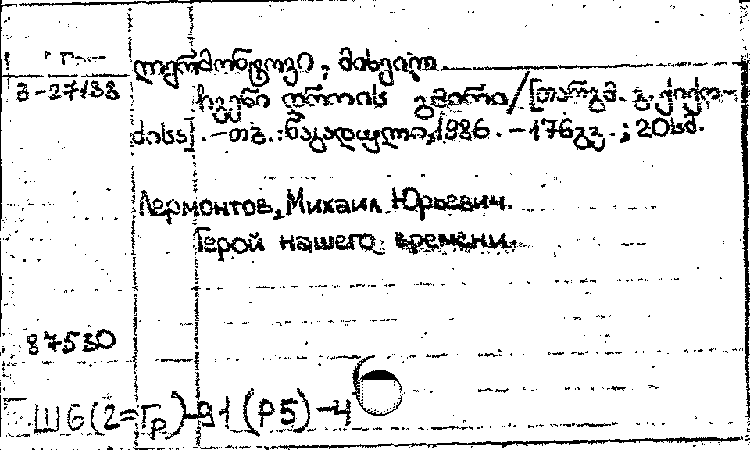 Г—
ლერმონტოვი, მიხეილ
3-27133 ჩვენი დროის გმირი/[თარგმ. გ. ჭიჭო-
ძისა]. — თბ.: ნაკადული, 1986. — 176 გვ.; 20 სმ.
Лермонтов, Михаил Юрьевич.
Герой нашего времени.
87530
Ш6(2=Гр)-91(Р5)-4